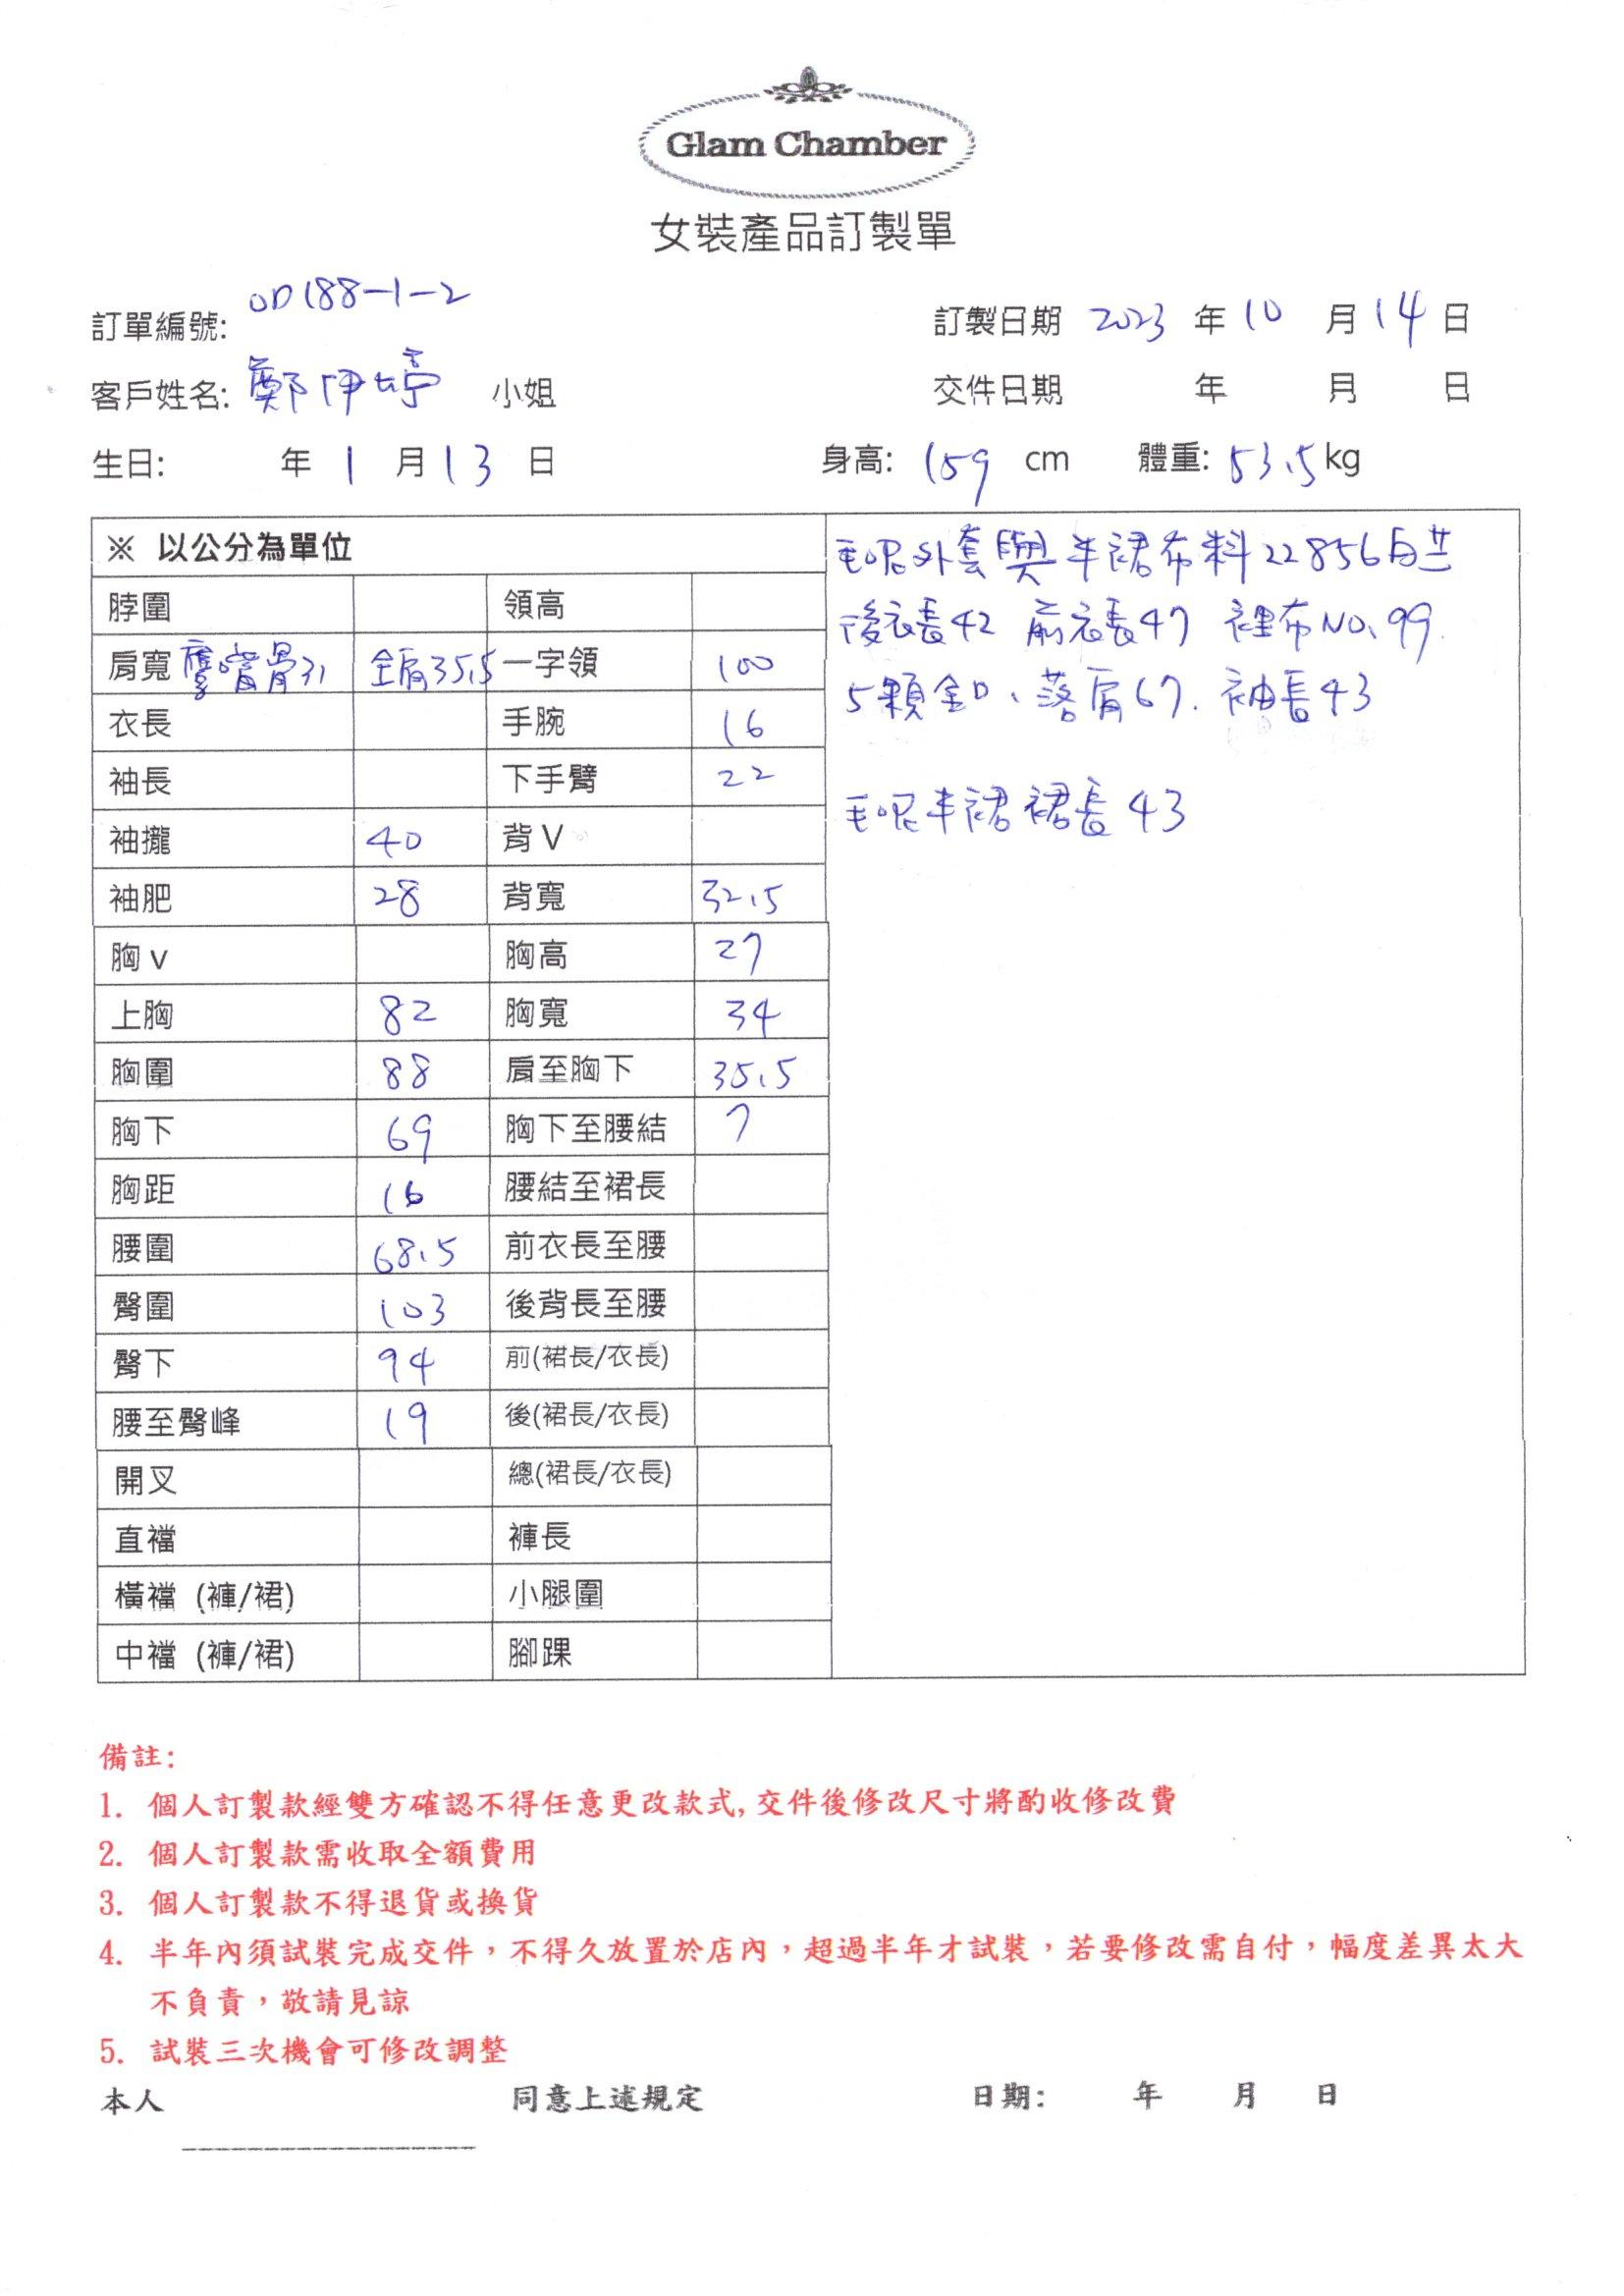 Glam Chamber
女裝產品訂製單
訂單編號: OD188-1-2
訂製日期 2023 年 10 月 14 日
客戶姓名: 鄭伊婷 小姐
交件日期 年 月 日
生日: 年 1 月 13 日 身高: 159 cm 體重: 53.5 kg
※ 以公分為單位
脖圍 領高
肩寬 骨31 全肩35.5 一字領 100
衣長 手腕 16
袖長 下手臂 22
袖攏 40 背V
袖肥 28 背寬 32.5
胸v 胸高 27
上胸 82 胸寬 34
胸圍 88 肩至胸下 35.5
胸下 69 胸下至腰結 7
胸距 16 腰結至裙長
腰圍 68.5 前衣長至腰
臀圍 103 後背長至腰
臀下 94 前(裙長/衣長)
腰至臀峰 19 後(裙長/衣長)
開叉 總(裙長/衣長)
直襠 褲長
橫襠 (褲/裙) 小腿圍
中襠 (褲/裙) 腳踝
毛呢外套與半裙布料22856
後衣長42 前衣長47 裡布NO.99
5顆釦、落肩67. 袖長43
毛呢半裙裙長43
備註:
1. 個人訂製款經雙方確認不得任意更改款式,交件後修改尺寸將酌收修改費
2. 個人訂製款需收取全額費用
3. 個人訂製款不得退貨或換貨
4. 半年內須試裝完成交件，不得久放置於店內，超過半年才試裝，若要修改需自付，幅度差異太大
不負責，敬請見諒
5. 試裝三次機會可修改調整
本人 同意上述規定 日期: 年 月 日